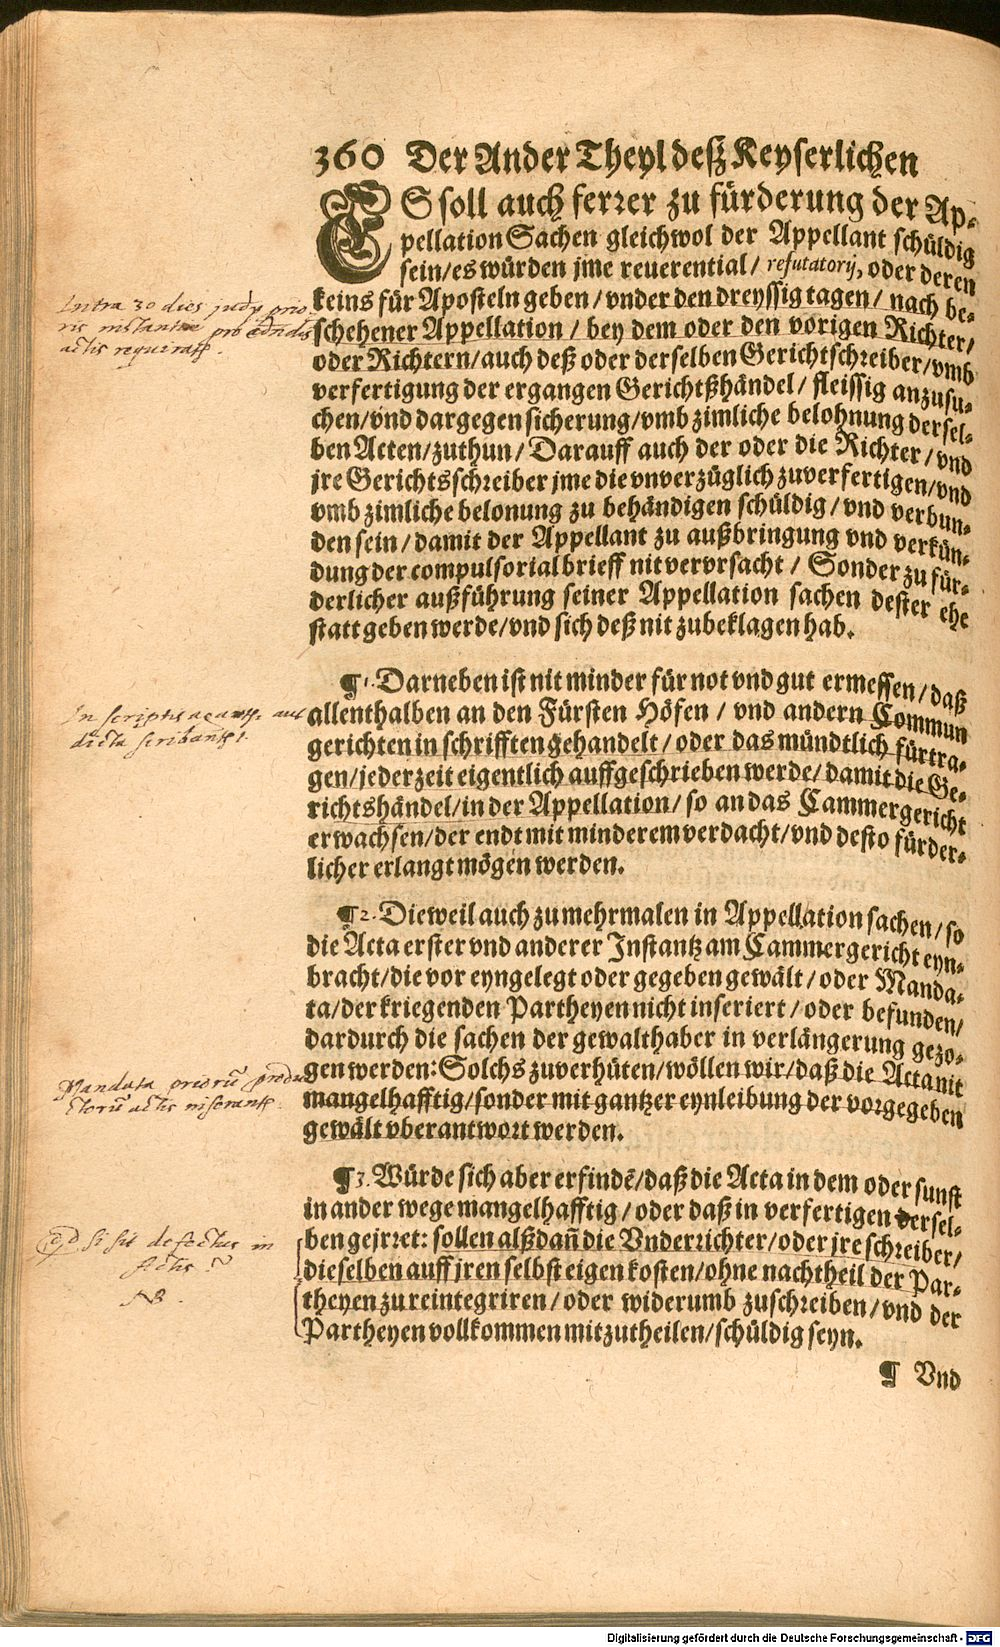 360 Der Ander Theyl deß Keyserlichen
ES soll auch ferrer zu fürderung der Ap-
pellation Sachen gleichwol der Appellant schüldig
sein/ es würden jme reuerential/ refutatorij, oder deren
keins für Aposteln geben/ vnder den dreyssig tagen/ nach be-
schehener Appellation/ bey dem oder den vorigen Richter/
oder Richtern/ auch deß oder derselben Gerichtschreiber/ vmb
verfertigung der ergangen Gerichtßhändel/ fleissig anzusu-
chen/ vnd dargegen sicherung/ vmb zimliche belohnung dersel-
ben Acten/ zuthun/ Darauff auch der oder die Richter/ vnd
jre Gerichtsschreiber jme die vnverzüglich zuverfertigen/ vnd
vmb zimliche belonung zu behändigen schüldig/ vnd verbun-
den sein/ damit der Appellant zu außbringung vnd verkün-
dung der compulsorial brieff nit vervrsacht/ Sonder zu für-
derlicher außführung seiner Appellation sachen dester ehe
statt geben werde/ vnd sich deß nit zubeklagen hab.
Intra 30 dies
¶ 1. Darneben ist nit minder für not vnd gut ermessen/ daß
allenthalben an den Fürsten Höfen/ vnd andern Commun
gerichten in schrifften gehandelt/ oder das mündtlich fürtra-
gen/ jederzeit eigentlich auffgeschrieben werde/ damit die Ge-
richtshändel/ in der Appellation/ so an das Cammergericht
erwachsen/ der endt mit minderem verdacht/ vnd desto fürder-
licher erlangt mögen werden.
In scriptis
¶ 2. Dieweil auch zu mehrmalen in Appellation sachen/ so
die Acta erster vnd anderer Instantz am Cammergericht eyn-
bracht/ die vor eyngelegt oder gegeben gewält/ oder Manda-
ta/ der kriegenden Partheyen nicht inseriert/ oder befunden/
dardurch die sachen der gewalthaber in verlängerung gezo-
gen werden: Solchs zuverhüten/ wöllen wir/ daß die Acta nit
mangelhafftig/ sonder mit gantzer eynleibung der vorgegeben
gewält vberantwort werden.
Mandata
actis
¶ 3. Würde sich aber erfindē/ daß die Acta in dem oder sunst
in ander wege mangelhafftig/ oder daß in verfertigen dersel-
ben gejrret: sollen alßdañ die Vnderrichter/ oder jre schreiber/
dieselben auff jren selbst eigen kosten/ ohne nachtheil der Par-
theyen zu reintegriren/ oder widerumb zuschreiben/ vnd der
Partheyen vollkommen mitzutheilen/ schüldig seyn.
si sit defectus in
Actis ?
NB.
¶ Vnd
Digitalisierung gefördert durch die Deutsche Forschungsgemeinschaft - DFG